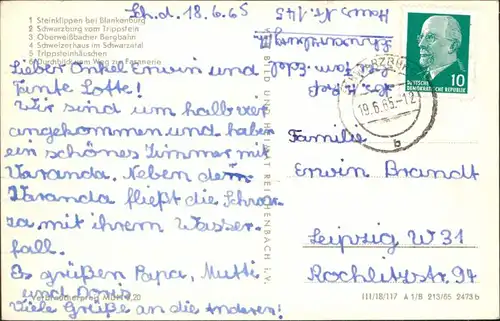 1 Steinklippen bei Blankenburg
2 Schwarzburg vom Trippstein
3 Oberweißbacher Bergbahn
4 Schweizerhaus im Schwarzatal
5 Trippsteinhäuschen
6 Durchblick vom Weg zur Fasanerie
Sch.d. 18.6.65
Lieber Onkel Erwin und
Tante Lotte!
Wir sind um halb vier
angekommen und haben
ein schönes Zimmer mit
Varanda. Neben dem
Varanda fließt die Schwar-
za mit ihrem Wasser-
fall.
Es grüßen Papa, Mutti
und Doris
Viele Grüße an die anderen!
Verbraucherpreis MDN 0,20
BILD UND HEIMAT REICHENBACH i. V.
Schwarzburg
Haus Nr. 145
19.6.65-12
b
10
DEUTSCHE
DEMOKRATISCHE REPUBLIK
Familie
Erwin Brandt
Leipzig W 31
Rochlitzstr. 94
III/18/117 A 1/B 213/65 2473 b